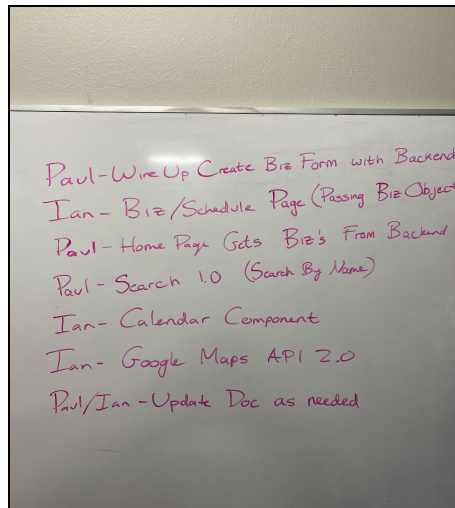 Paul-Wire Up Create Biz Form with Backend
Ian - Biz/Schedule Page (Passing Biz Object
Paul-Home Page Gets Biz's From Backend
Paul - Search 1.0 (Search By Name)
Ian- Calendar Component
Ian- Google Maps API 2.0
Paul/Ian -Update Doc as needed